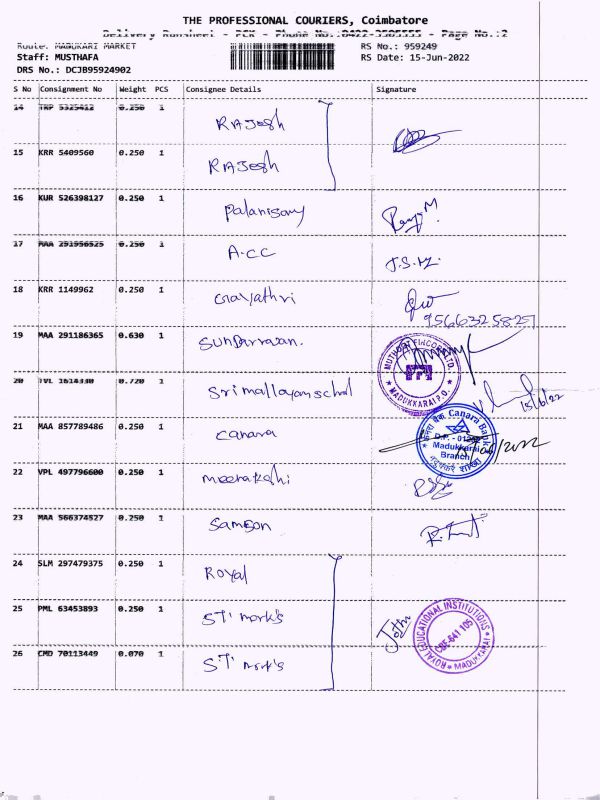 THE PROFESSIONAL COURIERS, Coimbatore
Delivery Runsheet - PCK - Phone No.:0422-3505555 - Page No.:2
Route: MADUKARI MARKET RS No.: 959249
Staff: MUSTHAFA RS Date: 15-Jun-2022
DRS No.: DCJB95924902
S No Consignment No Weight PCS Consignee Details Signature
14 TRP 5325412 0.250 1 RAJesh
15 KRR 5409560 0.250 1 RAJesh
16 KUR 526398127 0.250 1 Palanisamy
17 MAA 291956525 0.250 1 A.CC J.S.
18 KRR 1149962 0.250 1 Gayathri
9566325827
19 MAA 291186365 0.630 1 Sundarravan.
MUTHOOT FINCORP LTD.
MADUKKARAI P.O.
20 TVL 1614330 0.720 1 Srimallayanschol
15/6/22
21 MAA 857789486 0.250 1 Canara
केनरा बैंक Canara Bank
Madukkarai
Branch
22 VPL 497796600 0.250 1 meenakshi
23 MAA 566374527 0.250 1 Samson
24 SLM 297479375 0.250 1 Royal
25 PML 63453893 0.250 1 ST' mork's
Jothi
ROYAL EDUCATIONAL INSTITUTIONS
CBE-641 105
MADUKKARAI
26 CMD 70113449 0.070 1 ST' mork's